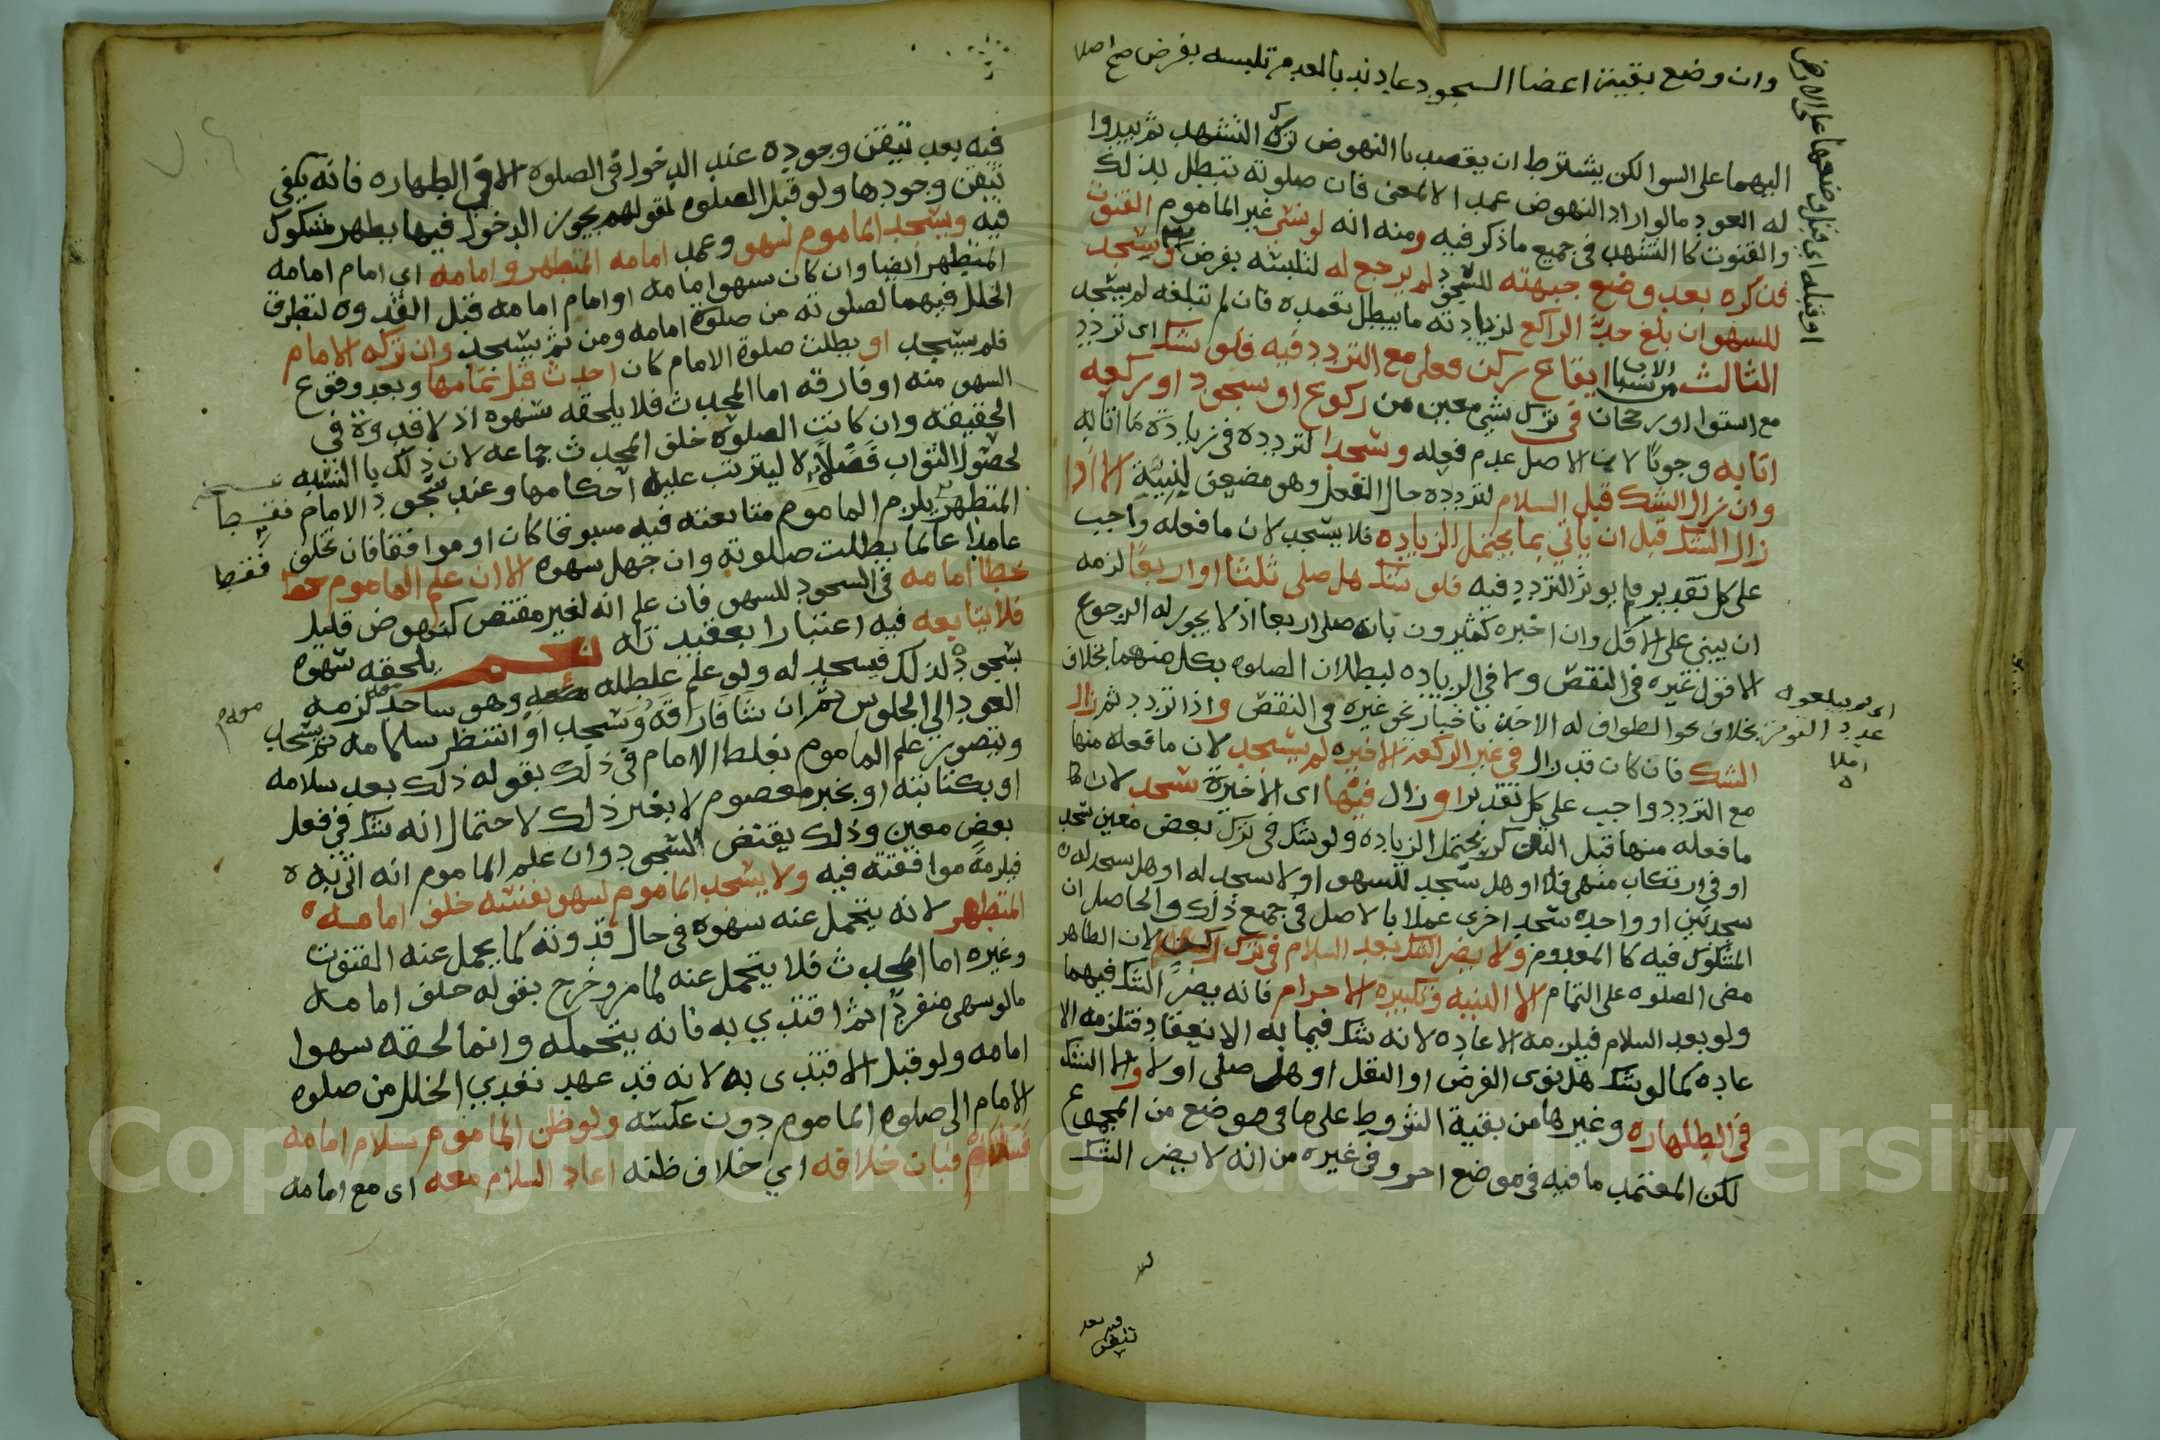 وان وضع بقية اعضا السجود عاد ندبا لعدم تلبسه بفرض صح اصلا
او قبله اي قبل وضعها على الارض
اليهما على السوا لكن يشترط ان يقصد با النهوض ترك التشهد ثم يبدوا
له العود مالو اراد النهوض عمدا لا لمعنى فان صلوته تبطل بذلك
والقنوت كا التشهد في جميع ماذكر فيه ومنه انه لو نسي غير الماموم القنوت
فذكره بعد وضع جبهته للسجود لم يرجع له لتلبسه بفرض ويسجد
للسهو ان بلغ حد الراكع لزيادته ما يبطل تعمده فان لم تبلغه لم يسجد
الثالث من الاسباب ايقاع ركن فعلي مع التردد فيه فلو شك اي تردد
مع استوا او رجحان في ترك شي معين من ركوع او سجود او ركعه
اتا به وجوبا لان الاصل عدم فعله وسجدا لتردده في زيادة ما اتا به
وان زال الشك قبل السلام لتردده حال الفعل وهو مضعف للنية الا اذا
زال الشك قبل ان ياتي بما يحتمل الزياده فلا يسجد لان ما فعله واجب
على كل تقدير فلم يوثر التردد فيه فلو شك هل صلى ثلثا او اربعا لزمه
ان يبني على الاقل وان اخبره كثيرون بانه صلى اربعا اذ لا يجوز له الرجوع
لا قول غيره في النقص ولا في الزياده لبطلان الصلوه بكل منهما بخلاف
اي لم يبلغوا عدد التواتر املا
بخلاف نحو الطواف له الاخذ با خبار نحو غيره في النقص واذا تردد ثم زال
الشك فان كان قد زال في غير الركعة الاخيره لم يسجد لان ما فعله منها
مع التردد واجب على كل تقدير او زال فيها اي الاخيرة سجد لان
ما فعله منها قبل التذكر يحتمل الزياده ولو شك في ترك بعض معين سجد
او في ارتكاب منهي فلا او هل سجد للسهو او لا سجد له او هل سجد له
سجدتين او واحده سجد اخرى عملا بالاصل في جميع ذلك والحاصل ان
المشكوك فيه كا المعدوم ولا يضر الشك بعد السلام في ترك ركن لان الظاهر
مضى الصلوه على التمام الا النيه وتكبيره الاحرام فانه يضر الشك فيهما
ولو بعد السلام فيلزمه الاعاده لانه شك فيما به الانعقاد فتلزمه الا
عاده كما لو شك هل نوى الفرض او النفل او هل صلى او لا والا الشك
في الطهاره وغيرها من بقية الشروط على ما في موضع من المجموع
لكن المعتمد ما فيه في موضع اخر وفي غيره من انه لا يضر الشك
فيه بعد تيقن
فيه بعد تيقن وجوده عند الدخول في الصلوه الا في الطهاره فانه يكفي
تيقن وجودها ولو قبل الصلوه لقولهم يجوز الدخول فيها بطهر مشكوك
فيه ويسجد الماموم لسهو وعمد امامه المتطهر وامامه اي امام امامه
المتطهر ايضا وان كان سهو امامه او امام امامه قبل القدوه لتطرق
الخلل فيهما لصلوته من صلوة امامه ومن ثم يسجد وان تركه الامام
فلم يسجد او بطلت صلوة الامام كان احدث قبل تمامها وبعد وقوع
السهو منه او فارقه اما المحدث فلا يلحقه سهوه اذ لا قدوة في
الحقيقه وان كانت الصلوه خلف المحدث جماعه لان ذلك با النسبه
لحصول الثواب فضلا لا ليترتب عليه احكامها وعند سجود الامام
المتطهر يلزم الماموم متابعته فيه مسبوقا كان او موافقا فان تخلف
عامدا عالما بطلت صلوته وان جهل سهوه الا ان علم الماموم خطا
خطا امامه في السجود للسهو فان علم انه لغير مقتض كنهوض قليل
فلا يتابعه فيه اعتبارا بعقيدته نعم يلحقه سهوه
بسجوده لذلك فيسجد له ولو علم غلطه وهو ساجد لزمه
العود الى الجلوس ثم ان شا فارقه وسجد او انتظر سلامه ثم يسجد
ويتصور علم الماموم بغلط الامام في ذلك بقوله ذلك بعد سلامه
او بكتابته او بخبر معصوم لا بغير ذلك لاحتمال انه شك في فعل
بعض معين وذلك يقتض السجود وان علم الماموم انه اتى به
فيلزمه موافقته فيه ولا يسجد الماموم لسهو نفسه خلف امامه
المتطهر لانه يتحمل عنه سهوه في حال قدوته كما يحمل عنه القنوت
وغيره اما المحدث فلا يتحمل عنه لما مر وخرج بقوله خلف امامه
مالو سهى منفردا ثم اقتدي به فانه يتحمله وانما لحقه سهوا
امامه ولو قبل الاقتدى به لانه قد عهد تعدي الخلل من صلوه
الامام الى صلوه الماموم دون عكسه ولو ظن الماموم سلام امامه
فسلم فبان خلافه اي خلاف ظنه اعاد السلام معه اى مع امامه
Copyright © King Saud University